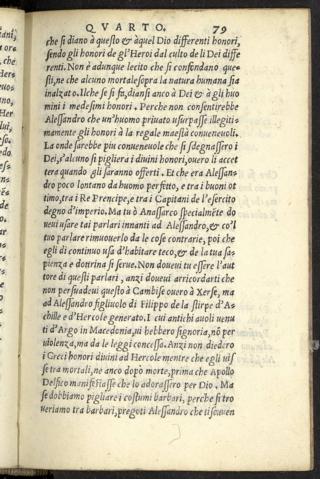 QVARTO. 79
che si diano à questo & àquel Dio differenti honori,
sendo gli honori de gl'Heroi dal culto de li Dei diffe
renti. Non è adunque lecito che si confondano que-
sti, ne che alcuno mortale sopra la natura humana sia
inalzato. Ilche se si fa, diansi anco à Dei & à gli huo
mini i medesimi honori. Perche non consentirebbe
Alessandro che un'huomo priuato usurpasse illegiti
mamente gli honori à la regale maestà conueneuoli.
La onde sarebbe piu conueneuole che si sdegnassero i
Dei, s'alcuno si pigliera i diuini honori, ouero li accet
tera quando gli saranno offerti. Et che era Alessan-
dro poco lontano da huomo perfetto, e tra i buoni ot
timo, tra i Re Prencipe, e tra i Capitani de l'esercito
degno d'imperio. Ma tu ò Anassarco specialmẽte do
ueui usare tai parlari innanti ad Alessandro, & co'l
tuo parlare rimuouerlo da le cose contrarie, poi che
egli di continuo usa d'habitare teco, & de la tua sa-
pienza e dottrina si serue. Non doueui tu essere l'aut
tore di questi parlari, anzi doueui arricordarti che
non persuadeui questo à Cambise ouero à Xerse, ma
ad Alessandro figliuolo di Filippo de la stirpe d'A-
chille e d'Hercole generato. I cui antichi auoli uenu
ti d'Argo in Macedonia, ui hebbero signoria, nõ per
uiolenza, ma da le leggi concessa. Anzi non diedero
i Greci honori diuini ad Hercole mentre che egli uis
se tra mortali, ne anco dopò morte, prima che Apollo
Delfico manifestasse che lo adorassero per Dio. Ma
se dobbiamo pigliare i costumi barbari, perche si tro
ueriamo tra barbari, pregoti Alessandro che ti souen